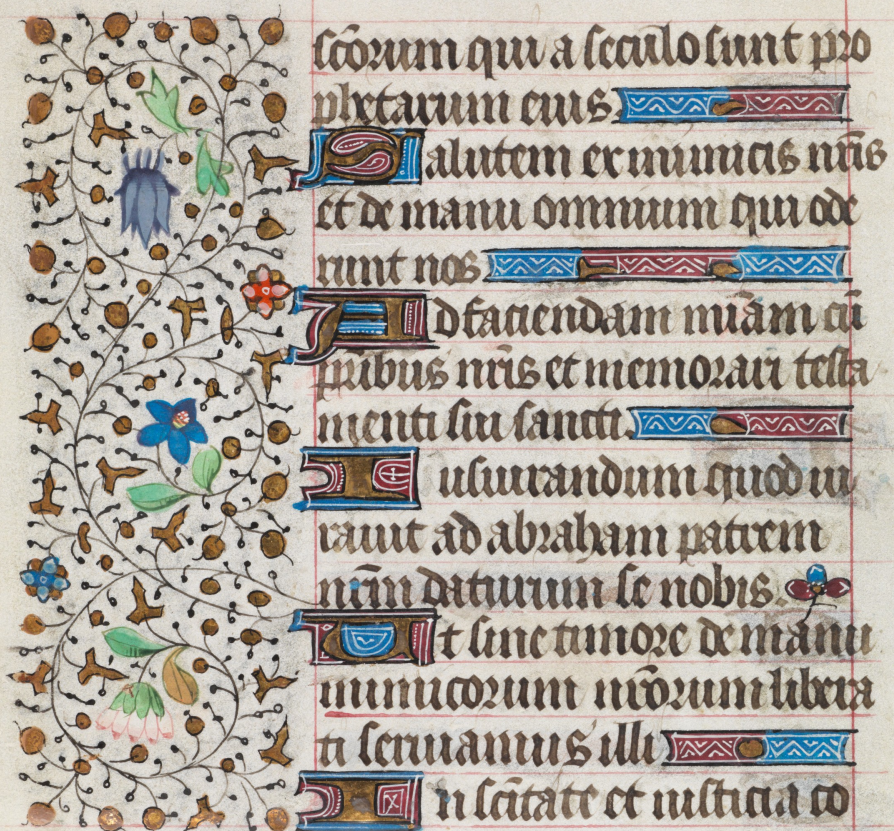 sc̄orum qui a seculo sunt pro
phetarum eius
Salutem ex inimicis nr̄is
et de manu omnium qui ode
runt nos
Ad faciendam mīam cū
pr̄ibus nr̄is et memorari testa
menti sui sancti.
Iusiurandum quod iu
rauit ad abraham patrem
nr̄m daturum se nobis.
Ut sine timore de manu
inimicorum nr̄orum libera
ti seruiamus illi
In sc̄itate et iusticia co